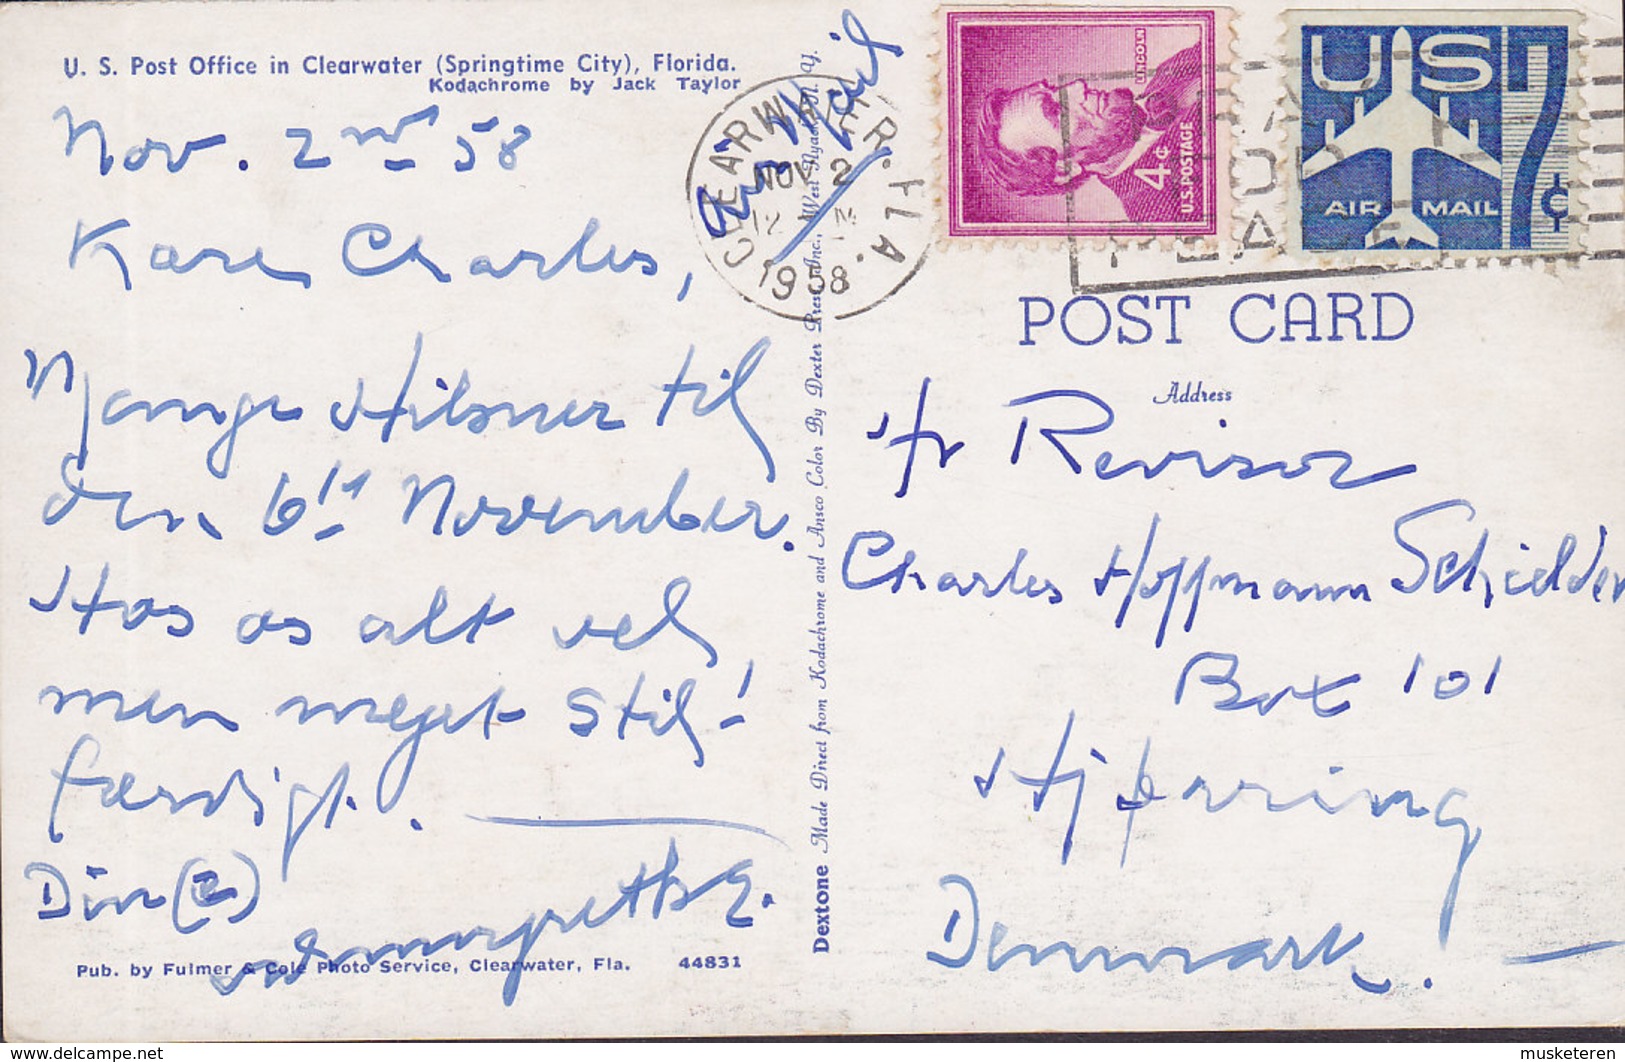 U. S. Post Office in Clearwater (Springtime City), Florida.
Kodachrome by Jack Taylor
Nov. 2nd 58
Kære Charles,
Mange Hilsner til
den 6te November.
Hos os alt vel
men meget stil!
færdigt.
Din(e)
Pub. by Fulmer & Cole Photo Service, Clearwater, Fla. 44831
Air Mail
CLEARWATER. FLA.
NOV 2
12 M
1958
Dextone Made Direct from Kodachrome and Ansco Color By Dexter Press, Inc., West Nyack, N. Y.
LINCOLN
4¢
U.S. POSTAGE
US 7¢
AIR MAIL
PRAY
FOR
PEACE
POST CARD
Address
Hr Revisor
Charles Hoffmann Schielder
Box 101
Hjørring
Denmark.
http://www.delcampe.net
musketeren